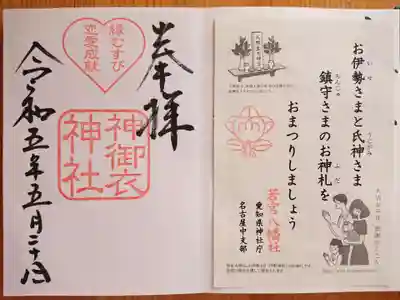 奉拝
縁むすび
恋愛成就
神御衣
神社
令和五年五月二十日
お伊勢さまと氏神さま
鎮守さまのお神札を
おまつりしましょう
若宮八幡社
愛知県神社庁
名古屋中支部